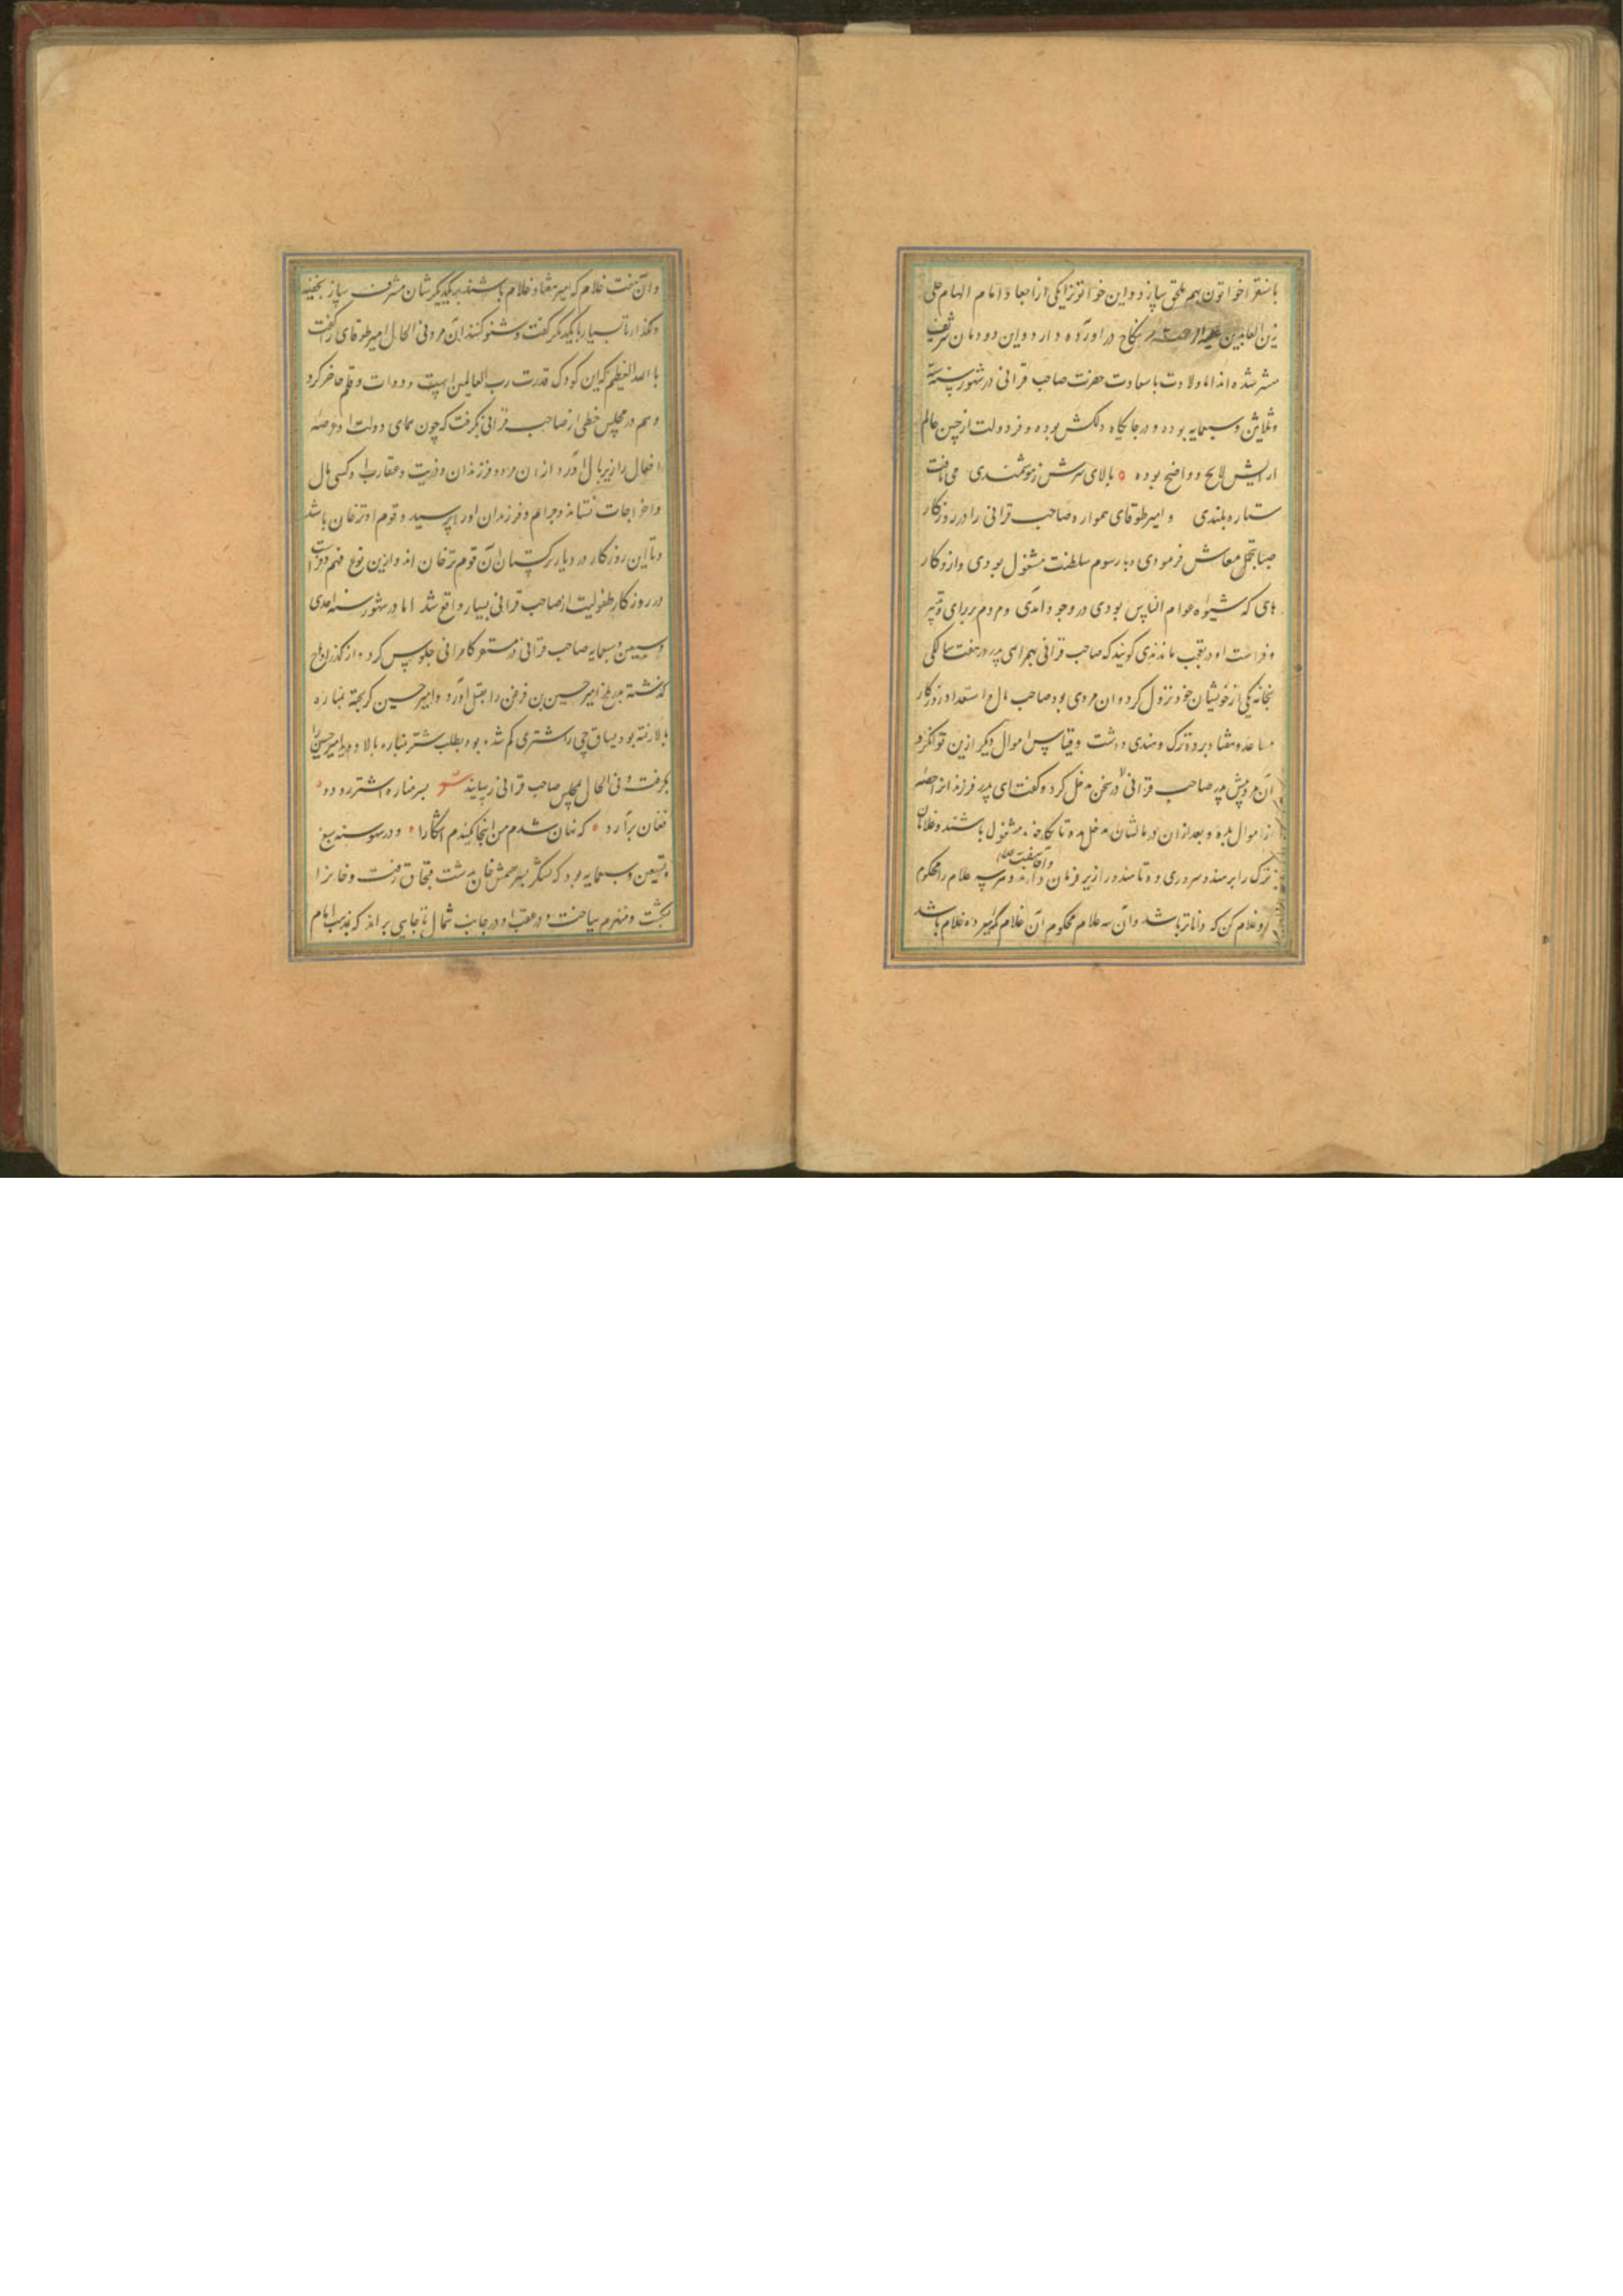 باشقرا خواتون بهم ملحق سازد و این خواتون یکی از احفاد امام الهمام علی
زین العابدین نکاح در آورده دارد و این دودمان شریف
مشرف شده اند اما ولادت با سعادت حضرت صاحب قرانی در شهور سنه ست
و ثلاثین و سبعمایه بوده و در جایگاه دلکش بوده و فر دولت از جبین عالم
ارایش لایح و واضح بوده بالای سرش ز هوشمندی می تافت
ستاره بلندی و امیر طوقای همواره صاحب قرانی را در روزگار
صبا بتجمل معاش فرمودی و با رسوم سلطنت مشغول بودی و از وکار
های که شیوه عوام الناس بودی در وجود آمدی و مردم بر رای و تدبیر
و فراست او در تعجب ماندندی گویند که صاحب قرانی بهمراهی پدر در هفت سالگی
بخانه یکی از خویشان خود نزول کرد و ان مردی بود صاحب مال و استعداد روزگار
مساعد و هفتاد برده ترک و هندی داشت و قیاس اموال دیگر ازین توان کرد
آن مرد پیش پدر صاحب قرانی در سخن مدخل کرده گفت ای پدر فرزندانرا حصه
از اموال بده و بعد از ان در مالشان مدخل مده تا بکار خود مشغول باشند و غلامان
ترک را بر هندو سروری ده تا هندو را زیر فرمان دارند و هر سه غلام را محکوم
رو غلام کن که داناتر باشد و آن سه غلام محکوم آن غلام که امیر ده غلام باشد
و آن هفت غلام که امیر هفتاد غلام باشند بر یکدیگر شان مشرف ساز بخفیه
و مگذار تا بسیار با یکدیگر گفت و شنو کنند آن مرد فی الحال امیر طوقای را گفت
بالله العظیم که این کودک قدرت رب العالمین است و دوات و قلم حاضر کرد
و هم در مجلس خطی از صاحب قرانی بگرفت که چون همای دولت او عرصه
افعال را زیر بال آورد از ان مرد و فرزندان و ذریت و عقارب او کسی مال
و اخراجات نستاند و جرایم و فرزندان او را نپرسید و قوم او ترخان باشد
و تا این روزگار در دیار ترکستان آن قوم ترخان اند و ازین نوع فهم و فراست
در روزگار طفولیت از صاحب قرانی بسیار واقع شد اما در شهور سنه احدی
و سبعین و سبعمایه صاحب قرانی در مستقر کامرانی جلوس کرد و از گذر
گذشته در بلخ امیر حسین بن قزغن را بقتل آورد و امیر حسین گریخته بمناره
بالا رفته بود یساقچی را شتری گم شده بود بطلب شتر بمناره بالا دوید امیر حسین را
بگرفت و فی الحال بمجلس صاحب قرانی رسانید شعر بسر مناره اشتر رود و
فغان برآرد که نهان شدم من اینجا مکنیدم آشکارا و در شهور سنه سبع
و تسعین و سبعمایه بود که لشکر بسر تقتمش خان بدشت قبچاق رفت و خان را
بکشت و منهزم ساخت و در عقب او در جانب شمال تا جایی براند که بمذهب امام